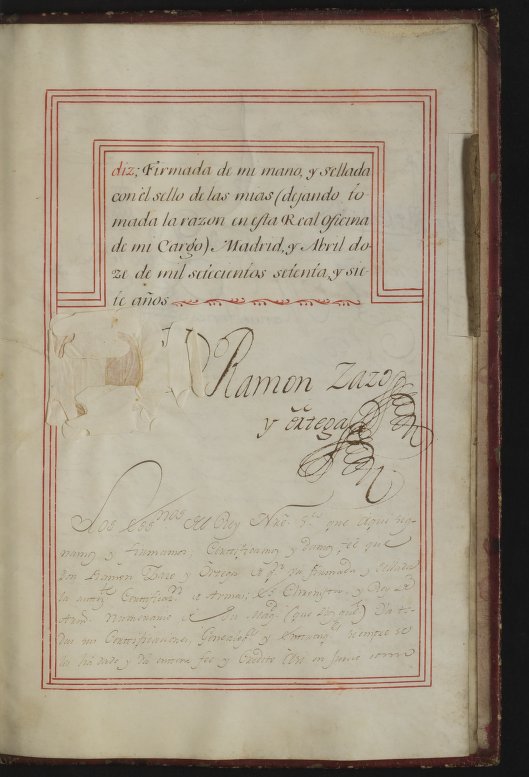 diz; Firmada de mi mano, y sellada
con el sello de las mias (dejando to
mada la razon en esta Real oficina
de mi Cargo) Madrid, y Abril do-
ze de mil setecientos setenta, y sie-
te años
Ramon Zazo
y Ortega
Los Ess.nos del Rey Nrô. S.or que aqui sig-
namos y firmamos, Certificamos y damos feé que
Don Ramon Zazo y Ortega
la Certificaz.on de Armas, es Chronista, y Rey de
Arm.s Numerario de Su Mag.d (que Dios güe)
sus Certificaciones, siempre se
la há dado, y dá entera feé y Credito en Juicio como